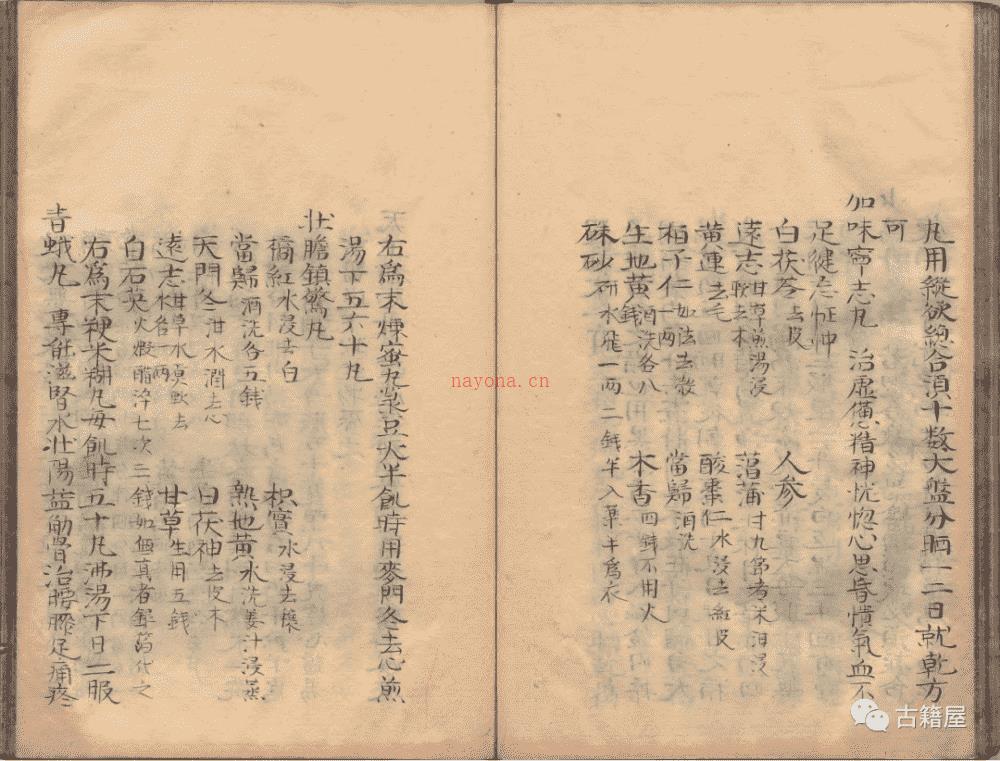 丸用縱欲總合湏十数大盤分晒一二日就乾方
可
加味寧志丸 治虛憊精神恍惚心思昏憒氣血不
足健忘怔忡
白茯苓去皮 人參
遠志甘草煎湯浸軟去木 菖蒲寸九節者米泔浸
黄連去毛 酸棗仁水浸去紅皮
柏子仁如法去殼一两 當歸酒洗
生地黄酒洗各八錢 木香四錢不用火
硃砂研水飛一两二錢半入藥半爲衣
右爲末煉蜜丸菉豆大半飢時用麥門冬去心煎
湯下五六十丸
壯膽鎮驚丸
橘紅水浸去白 枳實水浸去穰
當歸酒洗各五錢 熟地黄水洗姜汁浸蒸
天門冬泔水潤去心 白茯神去皮木
遠志甘草水煮軟去木各一两 甘草生用五錢
白石英火煅醋淬七次二錢如無真者犀角代之
右爲末粳米糊丸每飢時五十丸沸湯下日二服
青蛾丸 專能滋腎水壯陽益觔骨治腰膝足痛疼
nayona.cn
古籍屋